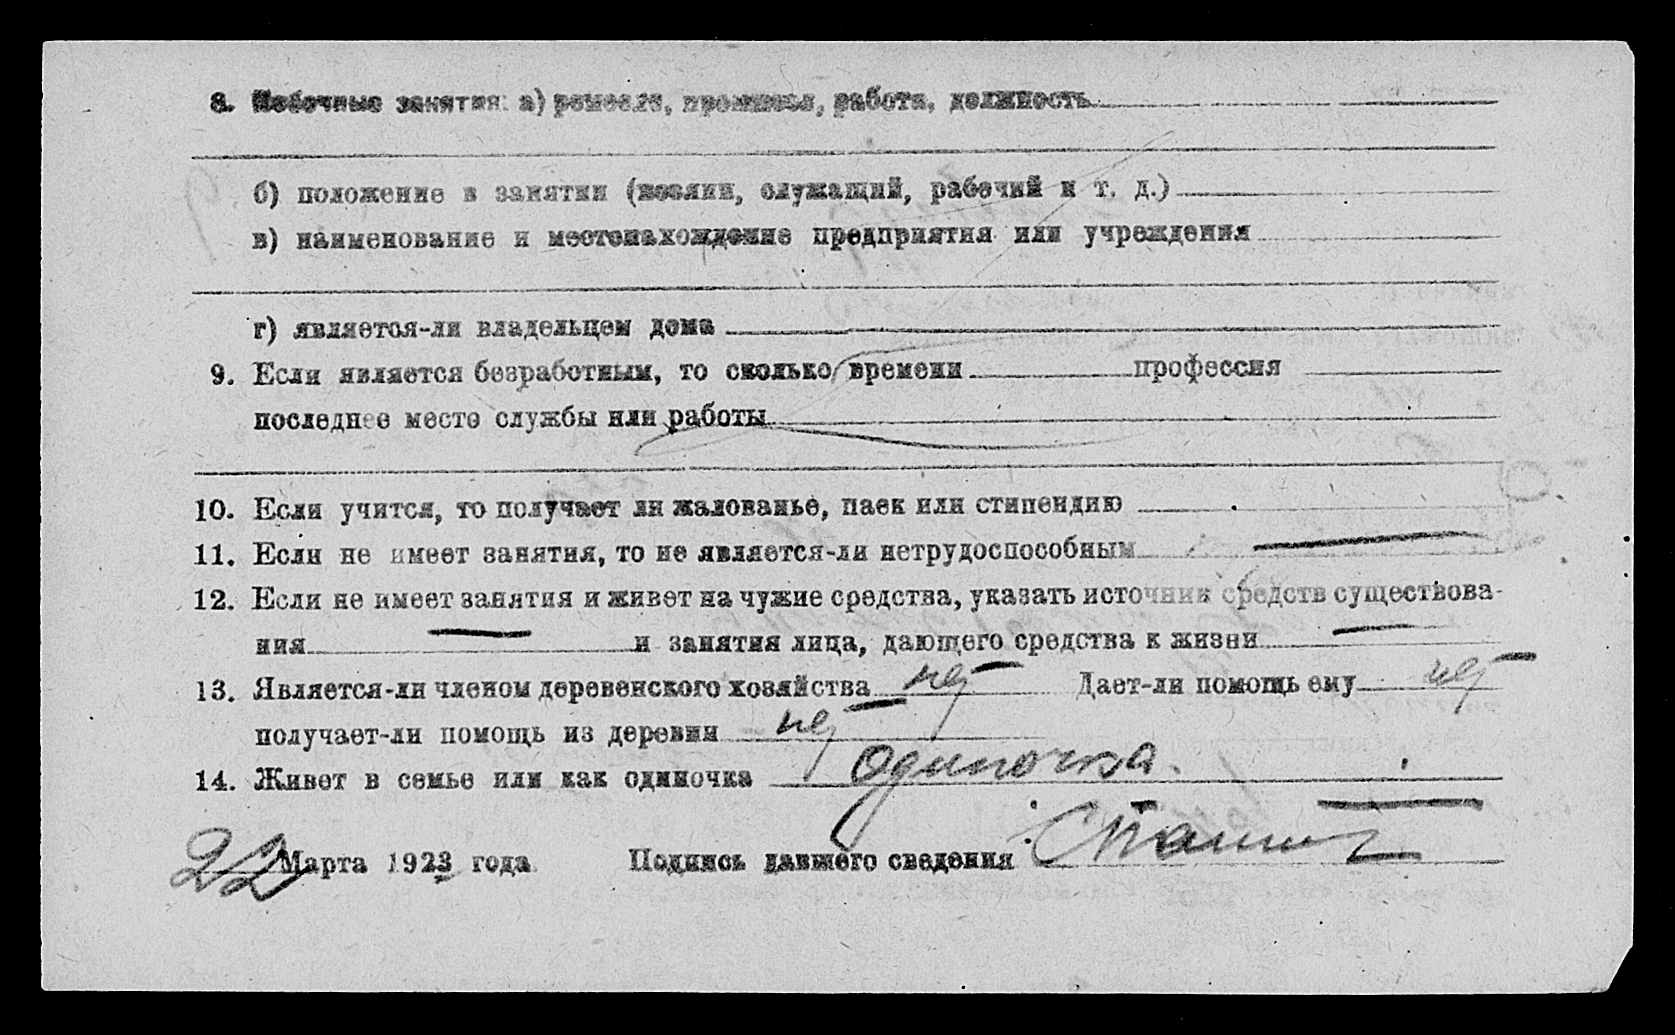 8. Побочные занятия: а) ремесло, промысел, работа, должность
б) положение в занятии (хозяин, служащий, рабочий и т. д.)
в) наименование и местонахождение предприятия или учреждения
г) является-ли владельцем дома
9. Если является безработным, то сколько времени профессия
последнее место службы или работы
10. Если учится, то получает ли жалованье, паек или стипендию
11. Если не имеет занятия, то не является-ли нетрудоспособным —
12. Если не имеет занятия и живет на чужие средства, указать источник средств существова-
ния — и занятия лица, дающего средства к жизни —
13. Является-ли членом деревенского хозяйства нет Дает-ли помощь ему нет
получает-ли помощь из деревни нет
14. Живет в семье или как одиночка одиночка.
22 Марта 1923 года Подпись давшего сведения